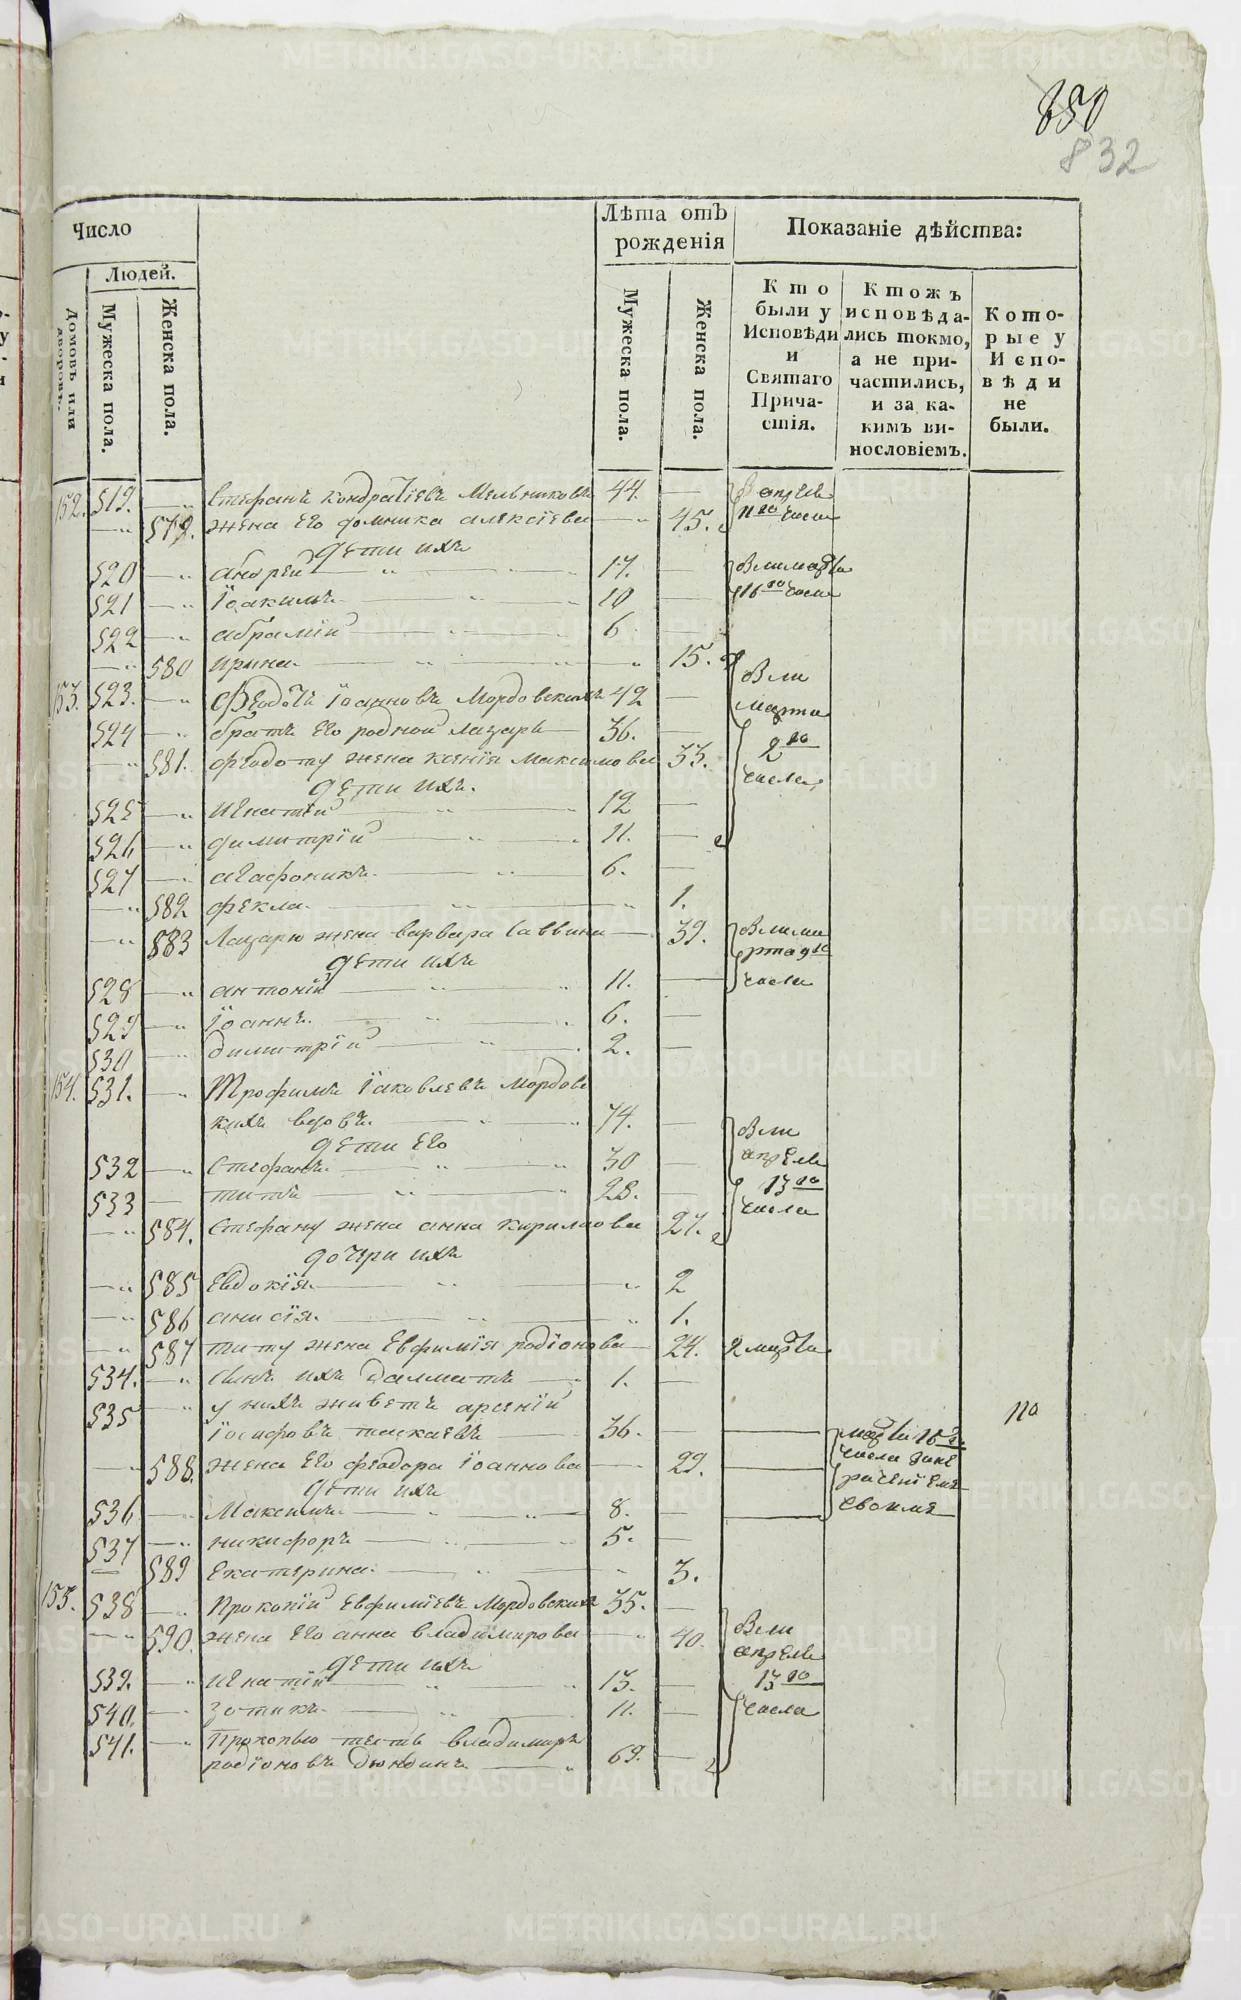 850
832
Число
Лѣта отъ
рожденія
Показаніе дѣйства:
Людей.
Домовъ или
дворовъ.
Мужеска пола.
Женска пола.
Мужеска пола.
Женска пола.
Кто
были у
Исповѣди
и
Святаго
Прича-
стія.
Ктожъ
исповѣда-
лись токмо,
а не при-
частились,
и за ка-
кимъ ви-
нословіемъ.
Кото-
рые у
Испо-
вѣди
не
были.
152. 519. Стефанъ Кондратіевъ Мельниковъ 44.
579. жена его домника алексіева 45.
дети ихъ
520 андрей 17.
521 Іоакимъ 10
522 абрамій 6
580 ирина 15.
153. 523. Феодотъ Іоанновъ Мордовскихъ 42
524 братъ его родной лазарь 36.
581. феодоту жена ксенія максимова 33.
дети ихъ.
525 игнатій 12
526 димитрій 11.
527 агафоникъ 6.
582 фекла 1.
583 Лазарю жена варвара саввина 39.
дети ихъ
528 антоній 11.
529 Іоаннъ 6.
530 димитрій 2.
154. 531. Трофимъ Іаковлевъ Мордовс
кихъ вдовъ. 74.
дети его
532 Стефанъ 30
533 титъ 28.
584. Стефану жена анна кирилова 27.
дочери ихъ
585 Евдокія 2
586 анисія 1.
587 титу жена Евфимія родіонова 24. 2 марта
534. сынъ ихъ Далматъ 1.
535 у нихъ живетъ арсеній
Іосифовъ 36.
588. жена его феодора Іоаннова 29.
дети ихъ
536 Максимъ 8.
537 никифоръ 5.
589 Екатерина 3.
155. 538 Прокопій Евфиміевъ Мордовскихъ 35.
590. жена его анна владимирова 40.
дети ихъ
539. игнатій 13.
540. Зотикъ 11.
541. Прокопью тесть владимиръ
родіоновъ Дюндинъ 69.
апреля
11го числа
марта
16го числа
были
марта
2го
числа
были ма
рта 9го
числа
были
апреля
13го
числа
марта 16го
числа
своимъ
были
апреля
13го
числа
METRIKI.GASO-URAL.RU